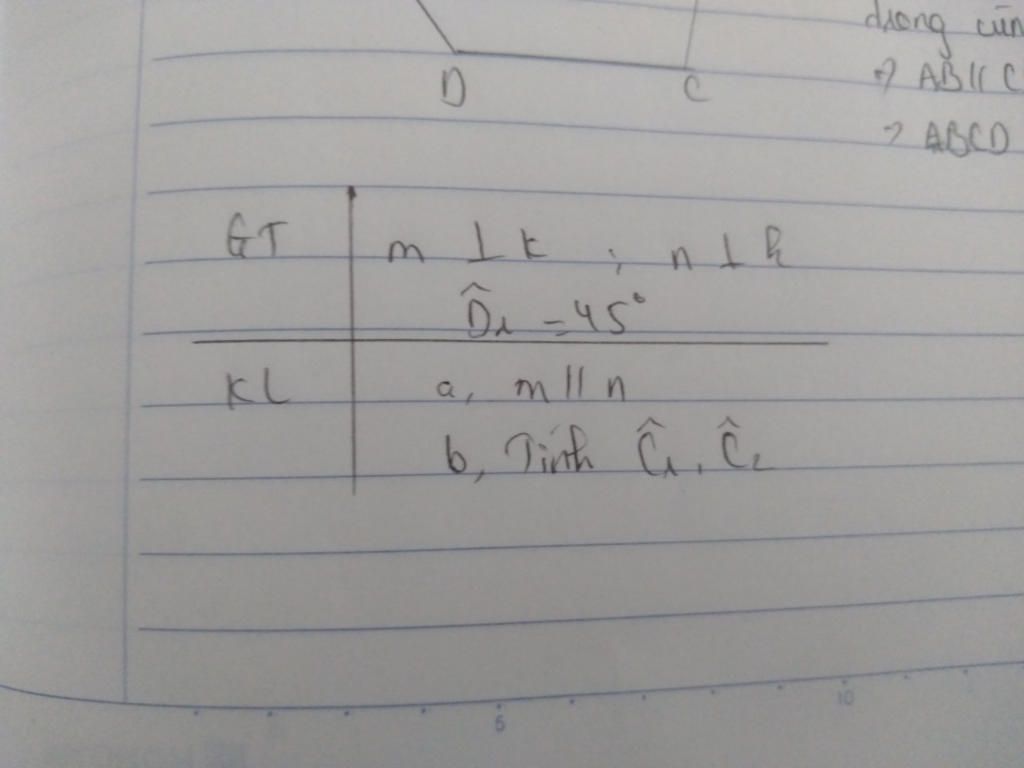 dương cùn
D
C
=> AB // C
=> ABCD
GT
m ⊥ k ; n ⊥ k
D̂₁ = 45°
KL
a, m // n
b, Tính Ĉ₁, Ĉ₂
5
10